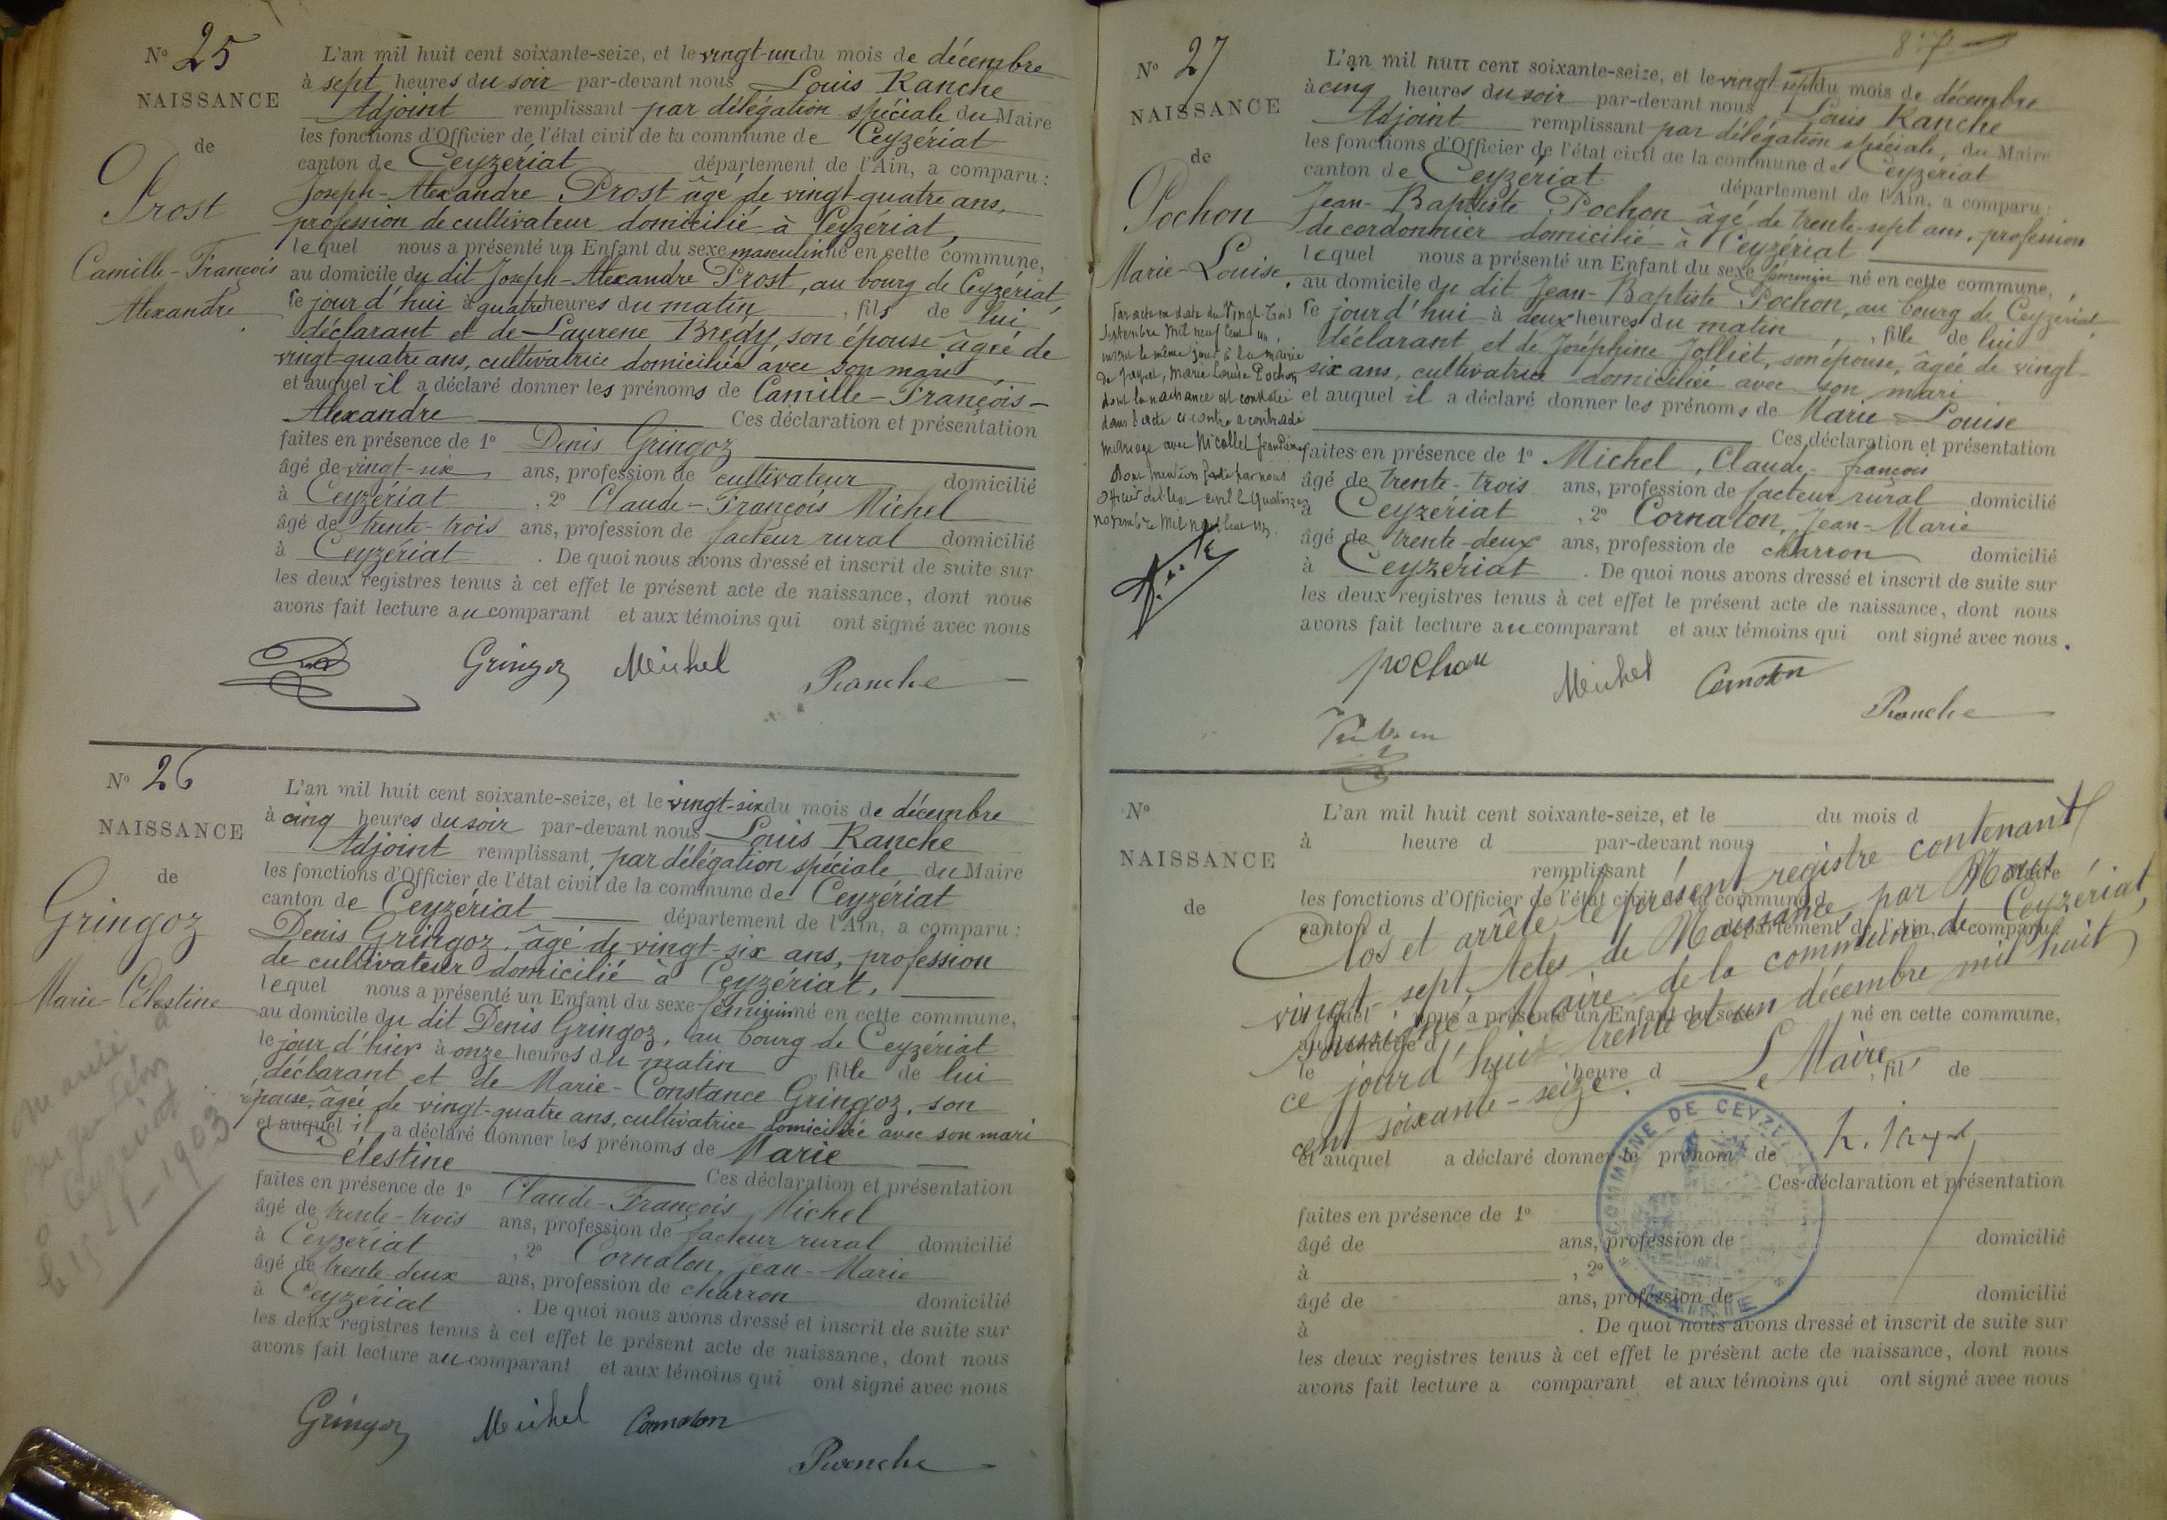 No 25
NAISSANCE
de
Prost
Camille-François
Alexandre
L'an mil huit cent soixante-seize, et le vingt-un du mois de décembre
à sept heures du soir par-devant nous Louis Ranche
Adjoint remplissant par délégation spéciale du Maire
les fonctions d'Officier de l'état civil de la commune de Ceyzériat
canton de Ceyzériat département de l'Ain, a comparu :
Joseph-Alexandre Prost âgé de vingt-quatre ans,
profession de cultivateur domicilié à Ceyzériat,
lequel nous a présenté un Enfant du sexe masculin né en cette commune,
au domicile du dit Joseph-Alexandre Prost, au bourg de Ceyzériat,
le jour d'hui à quatre heures du matin, fils de lui
déclarant et de Laurene Bredy, son épouse âgée de
vingt-quatre ans, cultivatrice domiciliée avec son mari
et auquel il a déclaré donner les prénoms de Camille-François-
Alexandre Ces déclaration et présentation
faites en présence de 1o Denis Gringoz
âgé de vingt-six ans, profession de cultivateur domicilié
à Ceyzériat, 2o Claude-François Michel
âgé de trente-trois ans, profession de facteur rural domicilié
à Ceyzériat. De quoi nous avons dressé et inscrit de suite sur
les deux registres tenus à cet effet le présent acte de naissance, dont nous
avons fait lecture au comparant et aux témoins qui ont signé avec nous
Gringoz Michel Ranche
No 26
NAISSANCE
de
Gringoz
Marie-Célestine
marié à
Ceyzériat
1903
L'an mil huit cent soixante-seize, et le vingt-six du mois de décembre
à cinq heures du soir par-devant nous Louis Ranche
Adjoint remplissant par délégation spéciale du Maire
les fonctions d'Officier de l'état civil de la commune de Ceyzériat
canton de Ceyzériat département de l'Ain, a comparu :
Denis Gringoz, âgé de vingt-six ans, profession
de cultivateur domicilié à Ceyzériat,
lequel nous a présenté un Enfant du sexe féminin né en cette commune,
au domicile du dit Denis Gringoz, au bourg de Ceyzériat
le jour d'hier à onze heures du matin, fille de lui
déclarant et de Marie-Constance Gringoz, son
épouse, âgée de vingt-quatre ans, cultivatrice domiciliée avec son mari
et auquel il a déclaré donner les prénoms de Marie
Célestine Ces déclaration et présentation
faites en présence de 1o Claude-François Michel
âgé de trente-trois ans, profession de facteur rural domicilié
à Ceyzériat, 2o Cornaton, Jean-Marie
âgé de trente deux ans, profession de charron domicilié
à Ceyzériat. De quoi nous avons dressé et inscrit de suite sur
les deux registres tenus à cet effet le présent acte de naissance, dont nous
avons fait lecture au comparant et aux témoins qui ont signé avec nous
Gringoz Michel Cornaton
Ranche
No 27
NAISSANCE
de
Pochon
Marie-Louise,
Par acte en date du Vingt Trois
Septembre Mil neuf Cent un,
inscrit le même jour à la mairie
de Marie Louise Pochon
dont la naissance est constatée
dans l'acte ci contre a contracté
mariage avec Nicollet
Dont mention faite par nous
Officier de l'état civil le Quatorze
novembre Mil neuf Cent un.
L'an mil huit cent soixante-seize, et le vingt sept du mois de décembre
à cinq heures du soir par-devant nous Louis Ranche
Adjoint remplissant par délégation spéciale, du Maire
les fonctions d'Officier de l'état civil de la commune de Ceyzériat
canton de Ceyzériat département de l'Ain, a comparu :
Jean-Baptiste Pochon âgé de trente-sept ans, profession
de cordonnier domicilié à Ceyzériat
lequel nous a présenté un Enfant du sexe féminin né en cette commune,
au domicile du dit Jean-Baptiste Pochon, au bourg de Ceyzériat,
le jour d'hui à deux heures du matin, fille de lui
déclarant et de Joséphine Jolliet, son épouse, âgée de vingt-
six ans, cultivatrice domiciliée avec son mari
et auquel il a déclaré donner les prénoms de Marie-Louise
Ces déclaration et présentation
faites en présence de 1o Michel, Claude-françois
âgé de trente-trois ans, profession de facteur rural domicilié
à Ceyzériat, 2o Cornaton, Jean-Marie
âgé de trente-deux ans, profession de charron domicilié
à Ceyzériat. De quoi nous avons dressé et inscrit de suite sur
les deux registres tenus à cet effet le présent acte de naissance, dont nous
avons fait lecture au comparant et aux témoins qui ont signé avec nous.
pochon Michel Cornaton
Ranche
No
NAISSANCE
de
L'an mil huit cent soixante-seize, et le du mois d
à heure d par-devant nous
remplissant Maire
les fonctions d'Officier de l'état civil de la commune d
canton d département de l'Ain, a comparu :
lequel nous a présenté un Enfant du sexe né en cette commune,
au domicile d
le heure d, fil de
et auquel a déclaré donner le prénom de
Ces déclaration et présentation
faites en présence de 1o
âgé de ans, profession de domicilié
à , 2o
âgé de ans, profession de domicilié
à . De quoi nous avons dressé et inscrit de suite sur
les deux registres tenus à cet effet le présent acte de naissance, dont nous
avons fait lecture a comparant et aux témoins qui ont signé avec nous
Clos et arrêté le présent registre contenant
vingt-sept Actes de Naissance par Nous
soussigné Maire de la commune de Ceyzériat,
ce jour d'hui trente et un décembre mil huit
cent soixante-seize.
Le Maire
COMMUNE DE CEYZÉRIAT
MAIRIE